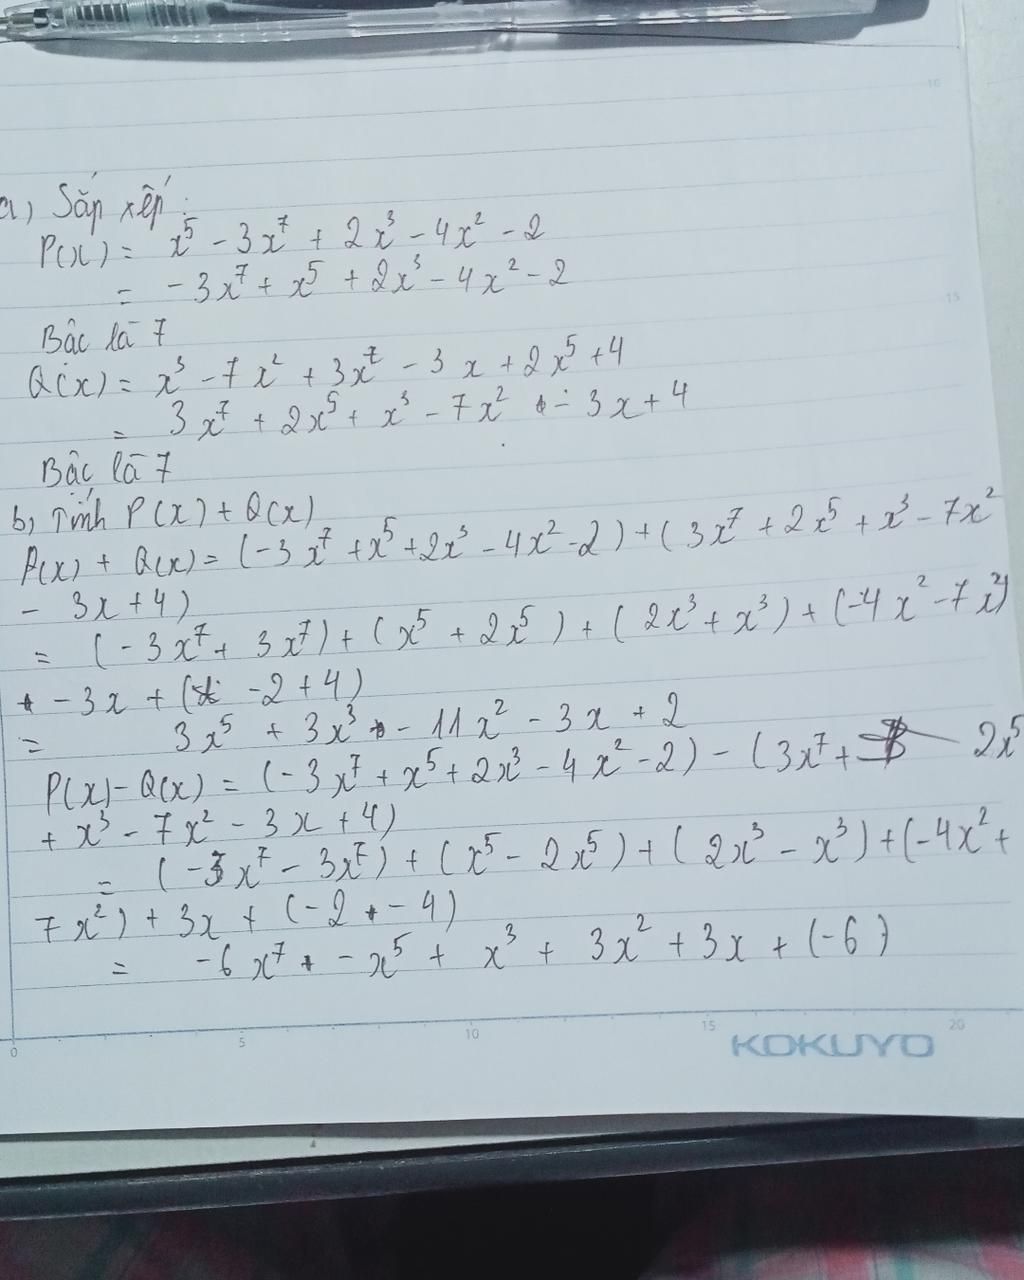 16
a, Sắp xếp :
P(x) = x⁵ - 3x⁷ + 2x³ - 4x² - 2
= -3x⁷ + x⁵ + 2x³ - 4x² - 2
15
Bậc là 7
Q(x) = x³ - 7x² + 3x⁷ - 3x + 2x⁵ + 4
= 3x⁷ + 2x⁵ + x³ - 7x² - 3x + 4
Bậc là 7
b, Tính P(x) + Q(x)
P(x) + Q(x) = (-3x⁷ + x⁵ + 2x³ - 4x² - 2) + (3x⁷ + 2x⁵ + x³ - 7x²
- 3x + 4)
= (-3x⁷ + 3x⁷) + (x⁵ + 2x⁵) + (2x³ + x³) + (-4x² - 7x²)
- 3x + (-2 + 4)
= 3x⁵ + 3x³ - 11x² - 3x + 2
P(x) - Q(x) = (-3x⁷ + x⁵ + 2x³ - 4x² - 2) - (3x⁷ + 2x⁵
+ x³ - 7x² - 3x + 4)
= (-3x⁷ - 3x⁷) + (x⁵ - 2x⁵) + (2x³ - x³) + (-4x² +
7x²) + 3x + (-2 - 4)
= -6x⁷ - x⁵ + x³ + 3x² + 3x + (-6)
0 5 10 15 20
KOKUYO